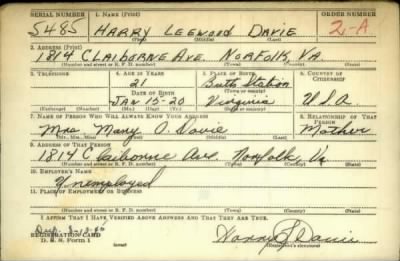 SERIAL NUMBER 1. NAME (Print) ORDER NUMBER
5485 HARRY LEEWOOD DAVIE 2-A
(First) (Middle) (Last)
2. ADDRESS (Print)
1814 CLAIBORNE AVE. NORFOLK, VA
(Number and street or R. F. D. number) (Town) (County) (State)
3. TELEPHONE 4. AGE IN YEARS 5. PLACE OF BIRTH 6. COUNTRY OF CITIZENSHIP
21 Station
DATE OF BIRTH (Town or county)
JAN 15-20 Virginia U.S.A.
(Exchange) (Number) (Mo.) (Day) (Yr.) (State or country)
7. NAME OF PERSON WHO WILL ALWAYS KNOW YOUR ADDRESS 8. RELATIONSHIP OF THAT PERSON
Mrs Mary O. Davie Mother
(Mr., Mrs., Miss) (First) (Middle) (Last)
9. ADDRESS OF THAT PERSON
1814 Claiborne Ave Norfolk, Va
(Number and street or R. F. D. number) (Town) (County) (State)
10. EMPLOYER'S NAME
Unemployed
11. PLACE OF EMPLOYMENT OR BUSINESS
(Number and street or R. F. D. number) (Town) (County) (State)
I AFFIRM THAT I HAVE VERIFIED ABOVE ANSWERS AND THAT THEY ARE TRUE.
REGISTRATION CARD
D. S. S. FORM 1 (over) Harry L Davie
(Registrant's signature)